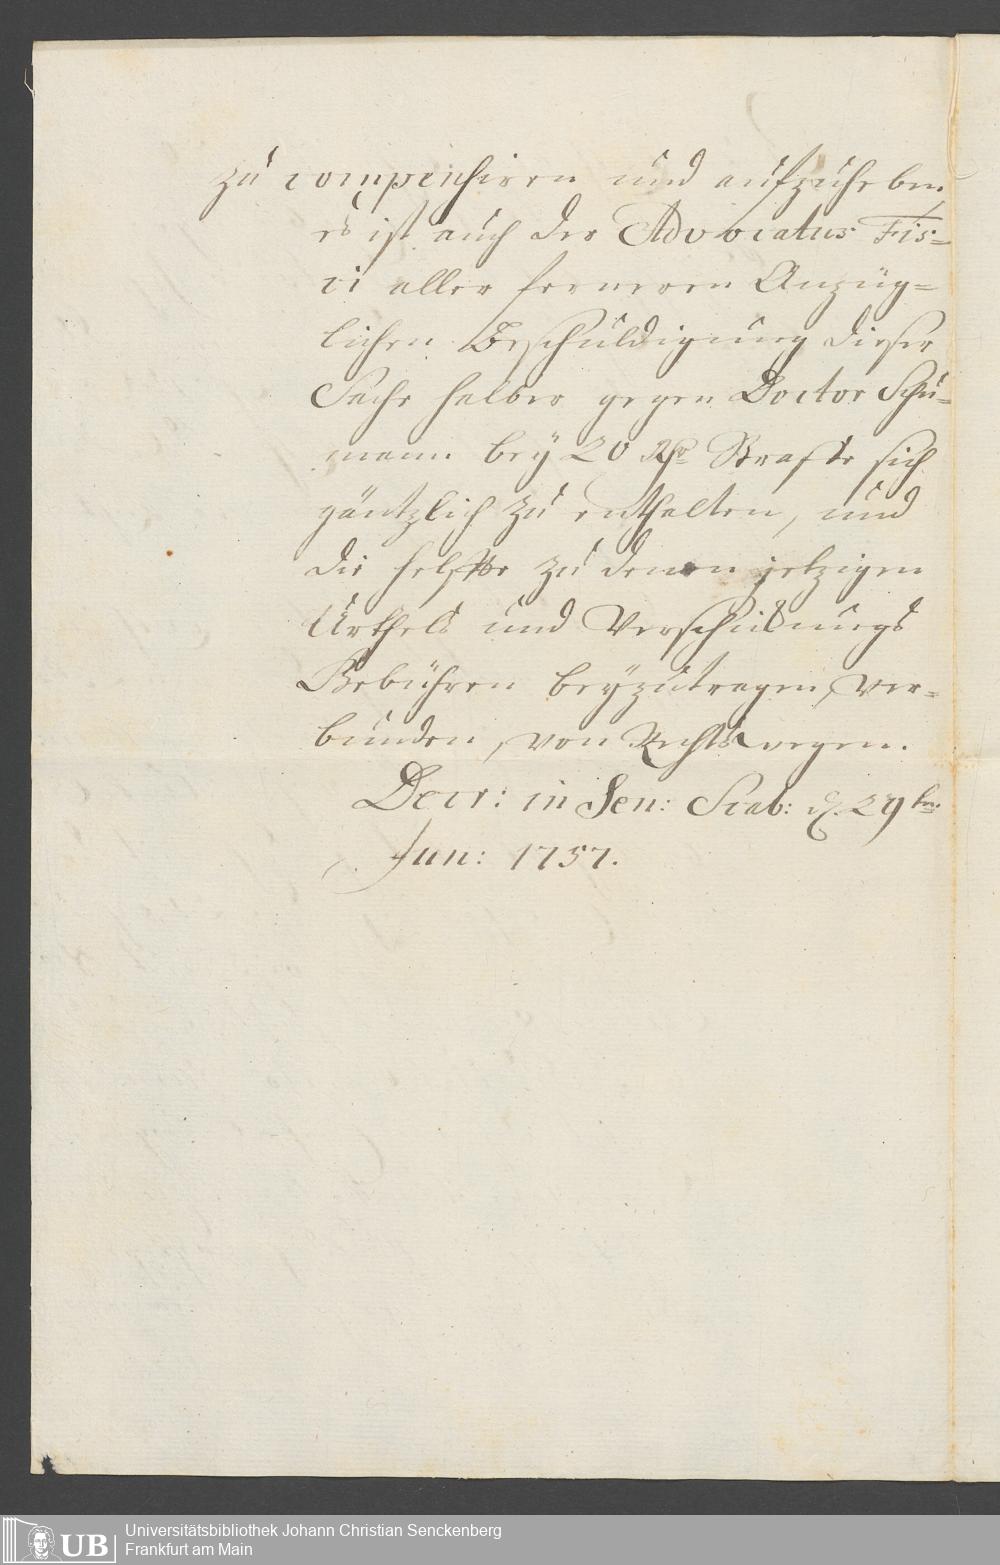 zu compensiren und aufzuheben,
es ist auch der Advocatus Fis=
ci aller ferneren Anzüg=
lichen Beschuldigung dieser
Sache halber gegen Doctor Schu=
mann bey 20 Rthlr Straffe sich
gäntzlich zu enthalten, und
die helffte zu denen jetzigen
Urthels und Verschickungs
Gebühren beyzutragen, ver=
bunden, von Rechts wegen.
Decr: in Sen: Scab: d. 29ten
Jun: 1757.
UB
Universitätsbibliothek Johann Christian Senckenberg
Frankfurt am Main